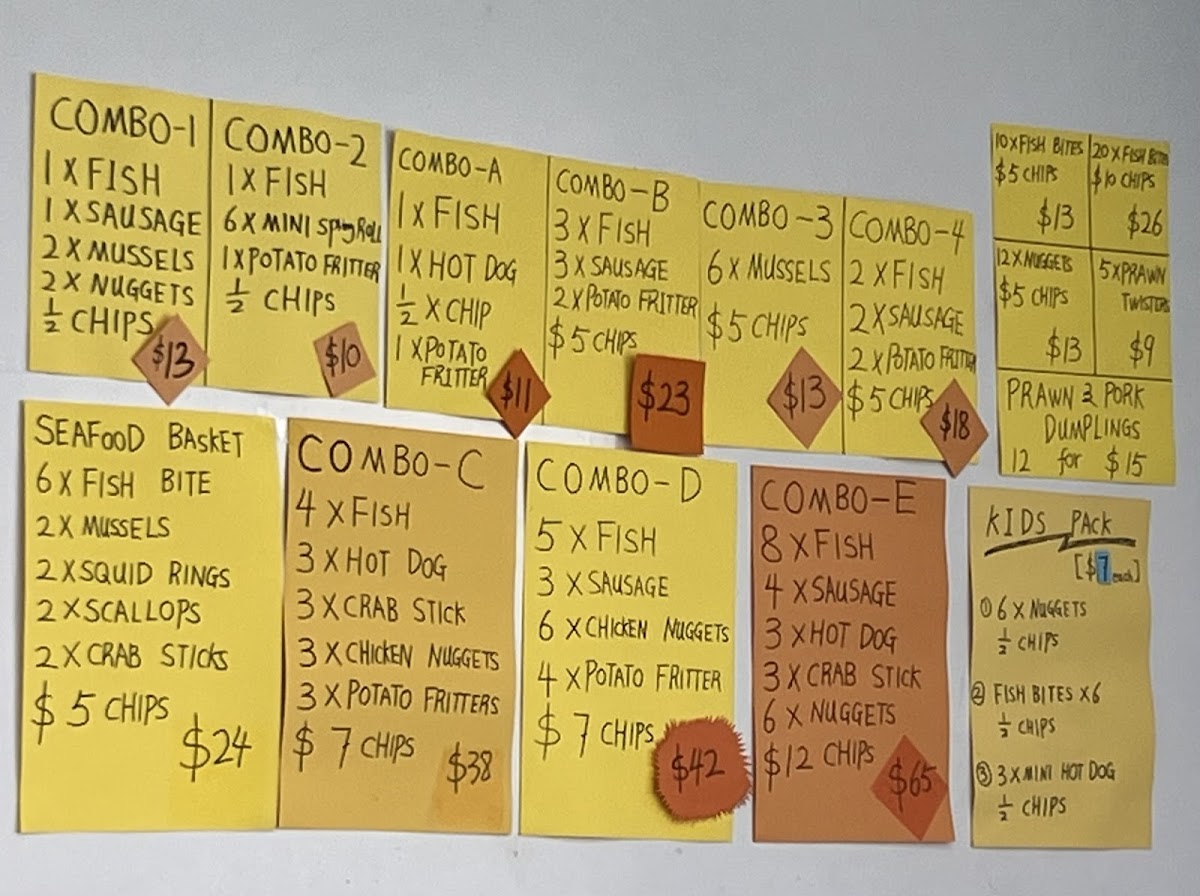 COMBO-1
1 X FISH
1 X SAUSAGE
2 X MUSSELS
2 X NUGGETS
1/2 CHIPS
$13
COMBO-2
1 X FISH
6 X MINI SpringRoll
1 X POTATO FRITTER
1/2 CHIPS
$10
COMBO-A
1 X FISH
1 X HOT DOG
1/2 X CHIP
1 X POTATO
FRITTER
$11
COMBO-B
3 X FISH
3 X SAUSAGE
2 X POTATO FRITTER
$5 CHIPS
$23
COMBO-3
6 X MUSSELS
$5 CHIPS
$13
COMBO-4
2 X FISH
2 X SAUSAGE
2 X POTATO FRITTER
$5 CHIPS
$18
10 X FISH BITES
$5 CHIPS
$13
20 X FISH BITES
$10 CHIPS
$26
12 X NUGGETS
$5 CHIPS
$13
5 X PRAWN
TWISTERS
$9
PRAWN & PORK
DUMPLINGS
12 for $15
SEAFOOD BASKET
6 X FISH BITE
2 X MUSSELS
2 X SQUID RINGS
2 X SCALLOPS
2 X CRAB STICKS
$5 CHIPS
$24
COMBO-C
4 X FISH
3 X HOT DOG
3 X CRAB STICK
3 X CHICKEN NUGGETS
3 X POTATO FRITTERS
$7 CHIPS
$38
COMBO-D
5 X FISH
3 X SAUSAGE
6 X CHICKEN NUGGETS
4 X POTATO FRITTER
$7 CHIPS
$42
COMBO-E
8 X FISH
4 X SAUSAGE
3 X HOT DOG
3 X CRAB STICK
6 X NUGGETS
$12 CHIPS
$65
KIDS PACK
[$7 each]
① 6 X NUGGETS
1/2 CHIPS
② FISH BITES X6
1/2 CHIPS
③ 3 X MINI HOT DOG
1/2 CHIPS